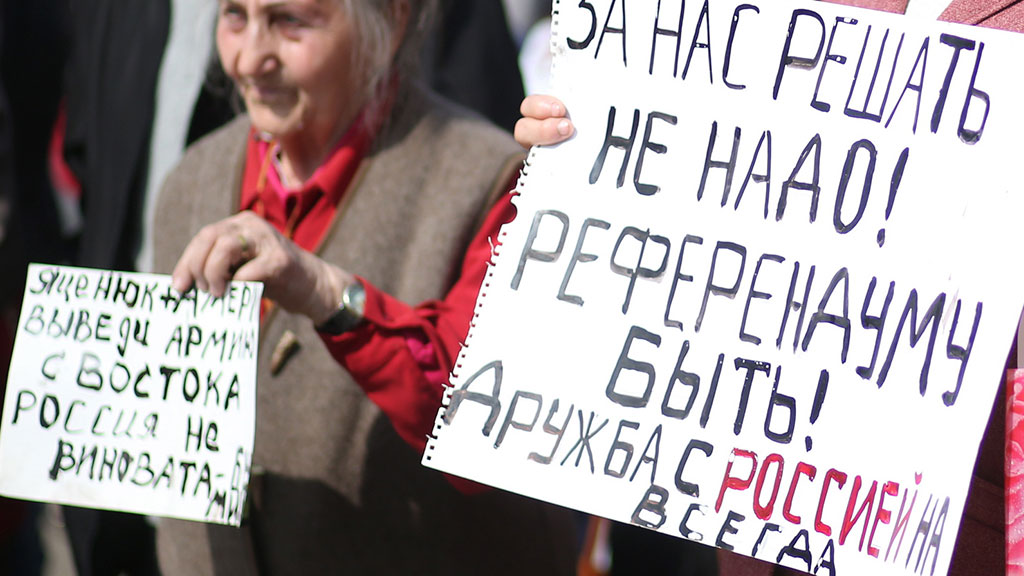 ЗА НАС РЕШАТЬ
НЕ НАДО!
РЕФЕРЕНДУМУ
БЫТЬ!
ДРУЖБА С РОССИЕЙ НА
ВСЕГДА
ЯЦЕНЮК
ВЫВЕДИ АРМИЮ
С ВОСТОКА
РОССИЯ НЕ
ВИНОВАТА-